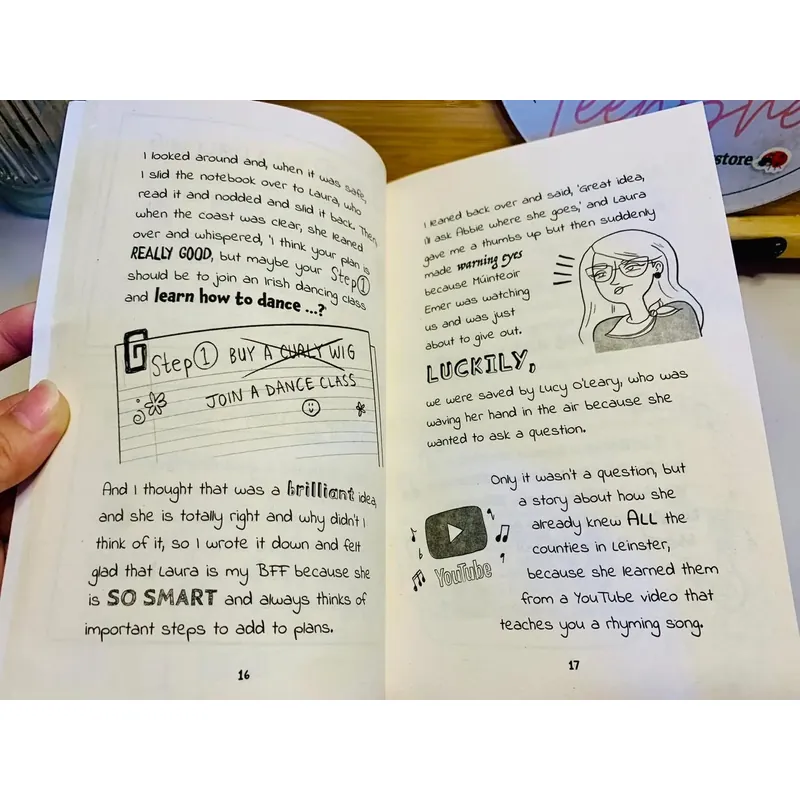 I looked around and, when it was safe,
I slid the notebook over to Laura, who
read it and nodded and slid it back. Then,
when the coast was clear, she leaned
over and whispered, 'I think your plan is
REALLY GOOD, but maybe your Step 1
should be to join an Irish dancing class
and learn how to dance ...?'
Step 1 BUY A CURLY WIG
JOIN A DANCE CLASS
And I thought that was a brilliant idea,
and she is totally right and why didn't I
think of it, so I wrote it down and felt
glad that Laura is my BFF because she
is SO SMART and always thinks of
important steps to add to plans.
16
store
I leaned back over and said, 'Great idea,
I'll ask Abbie where she goes,' and Laura
gave me a thumbs up but then suddenly
made warning eyes
because Múinteoir
Emer was watching
us and was just
about to give out.
LUCKILY,
we were saved by Lucy O'Leary, who was
waving her hand in the air because she
wanted to ask a question.
Only it wasn't a question, but
a story about how she
already knew ALL the
counties in Leinster,
because she learned them
from a YouTube video that
teaches you a rhyming song.
YouTube
17